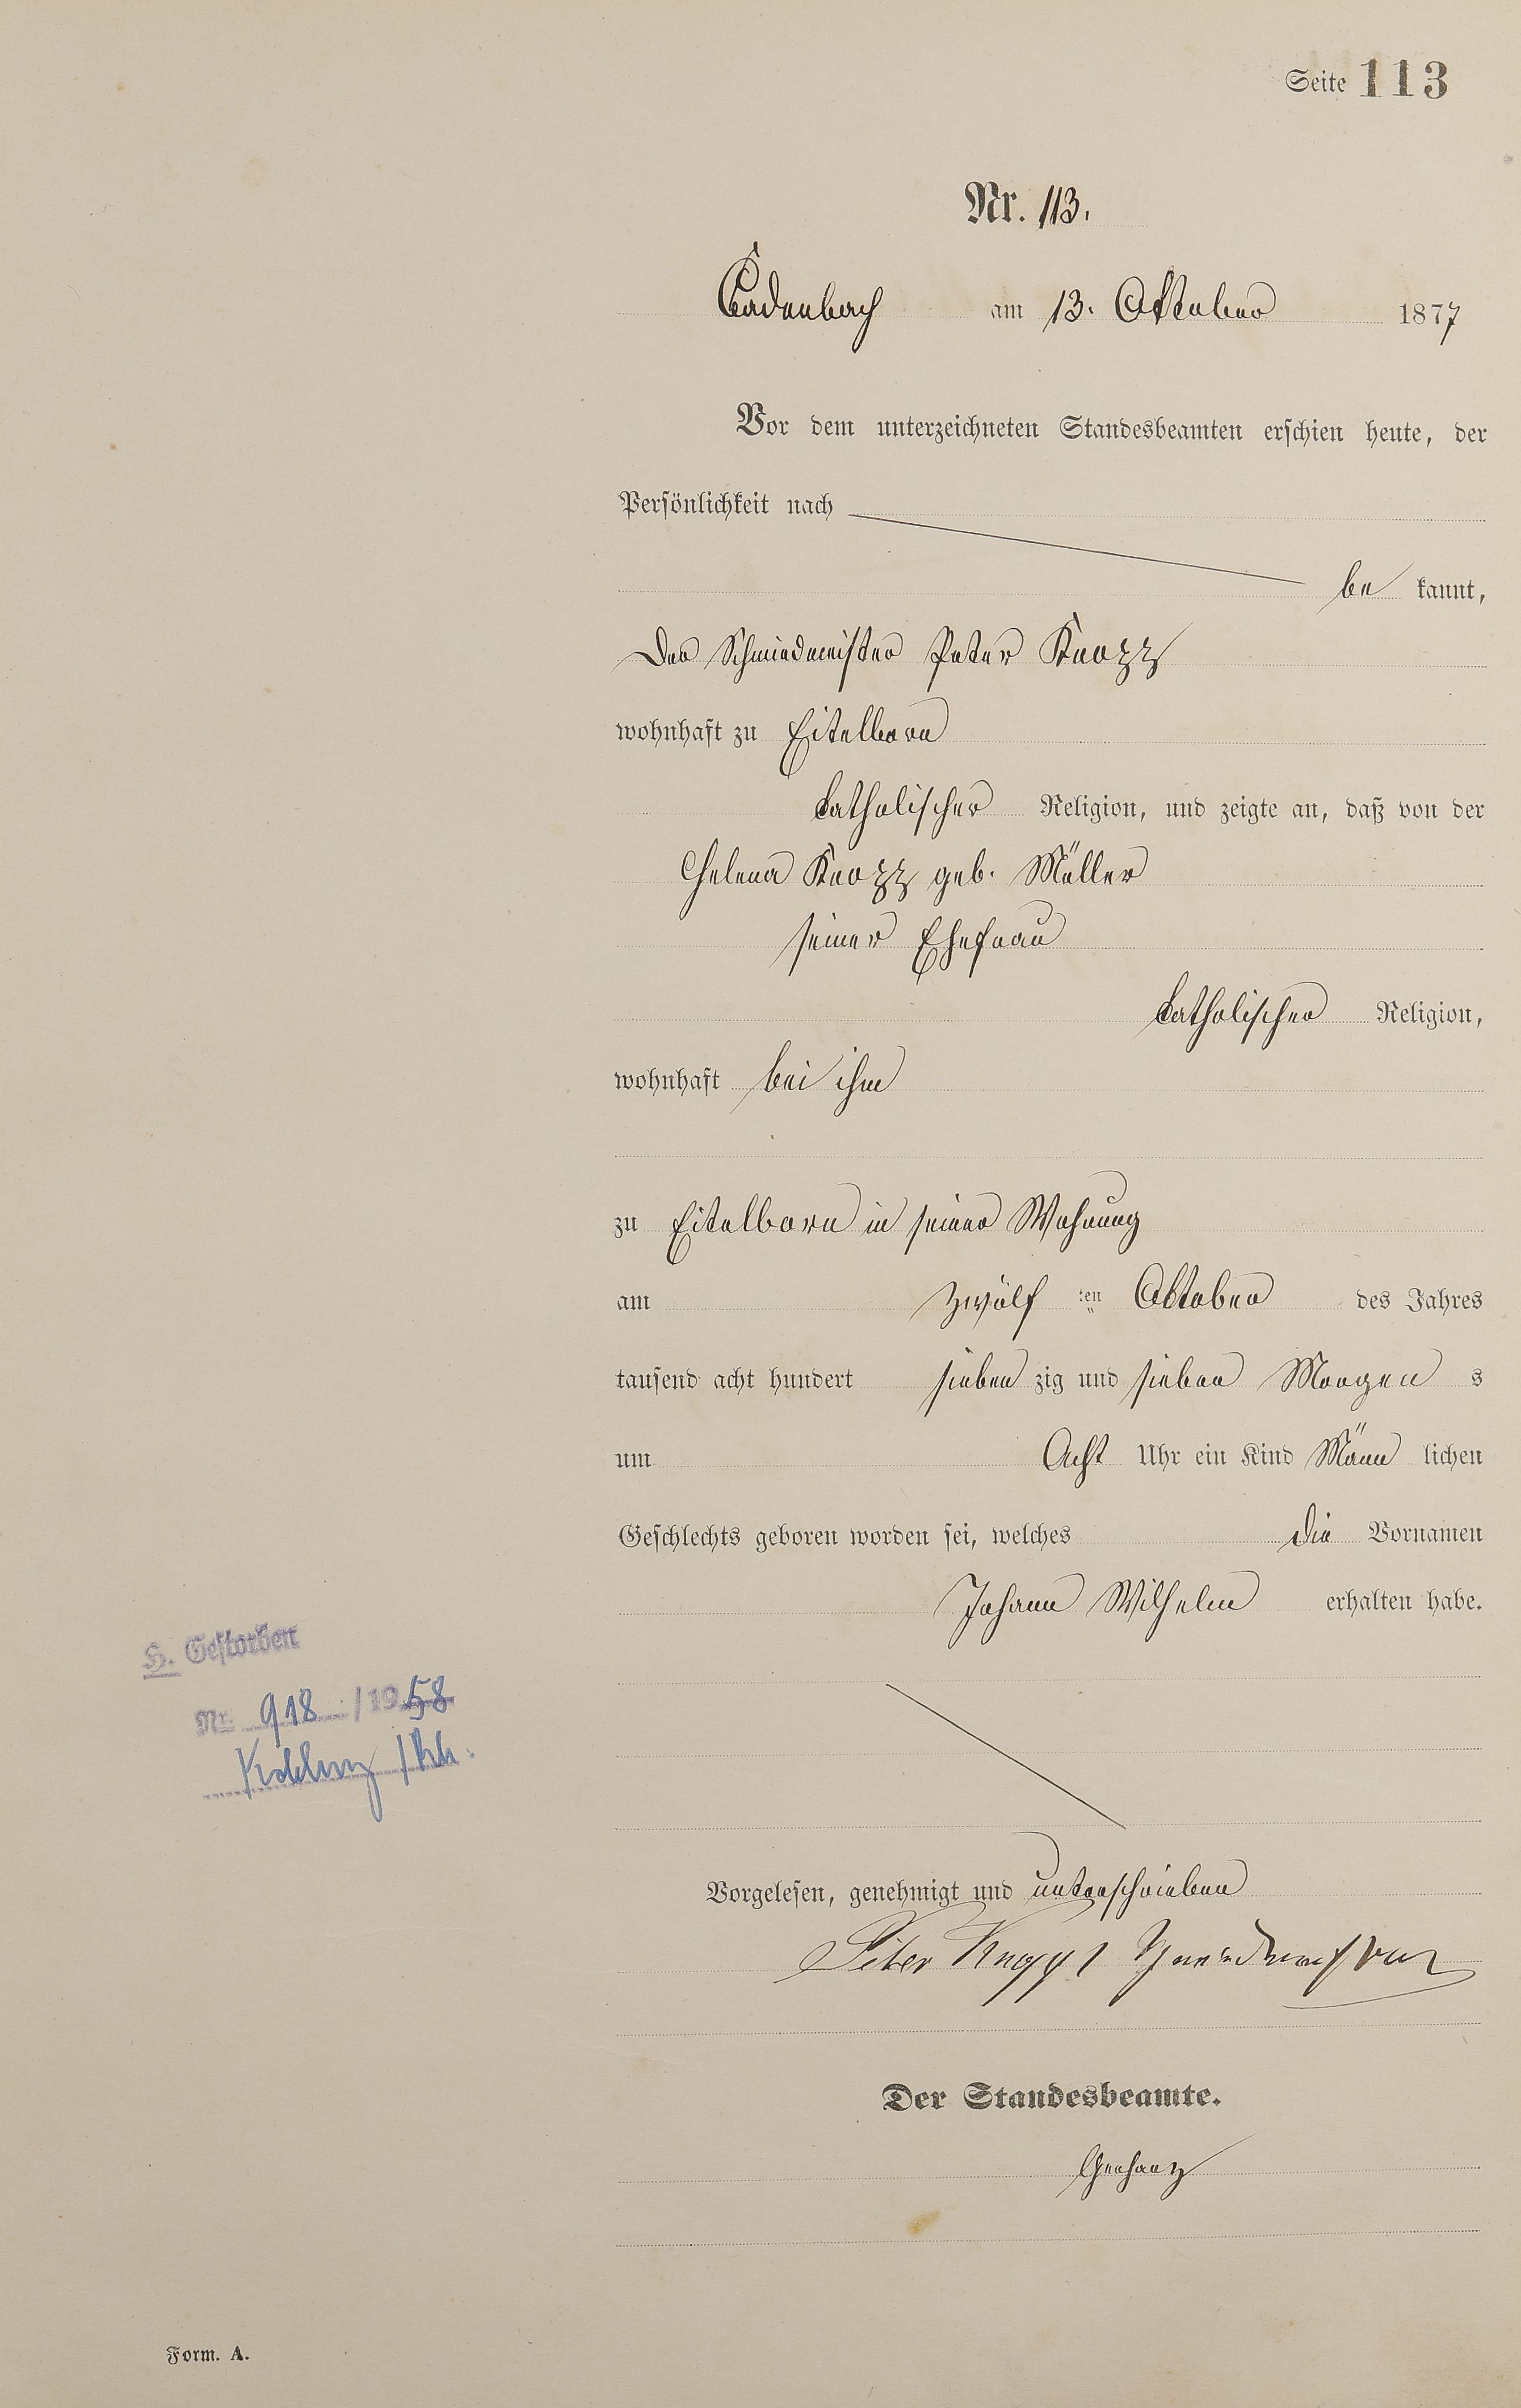 Seite 113
Nr. 113.
Cadenbach am 13. Oktober 1877
Vor dem unterzeichneten Standesbeamten erschien heute, der
Persönlichkeit nach
be kannt,
Der Schmiedmeister Peter Knopp
wohnhaft zu Eitelborn
katholischer Religion, und zeigte an, daß von der
Helena Knopp geb. Müller
seiner Ehefrau
katholischer Religion,
wohnhaft bei ihm
zu Eitelborn in seiner Wohnung
am zwölf ten Oktober des Jahres
tausend acht hundert sieben zig und sieben Morgen s
um Acht Uhr ein Kind Männ lichen
Geschlechts geboren worden sei, welches die Vornamen
Johann Wilhelm erhalten habe.
H. Gestorben
Nr. 918 /1958
Koblenz /Rh.
Vorgelesen, genehmigt und unterschrieben
Peter Knopp
Der Standesbeamte.
Gerharz
Form. A.